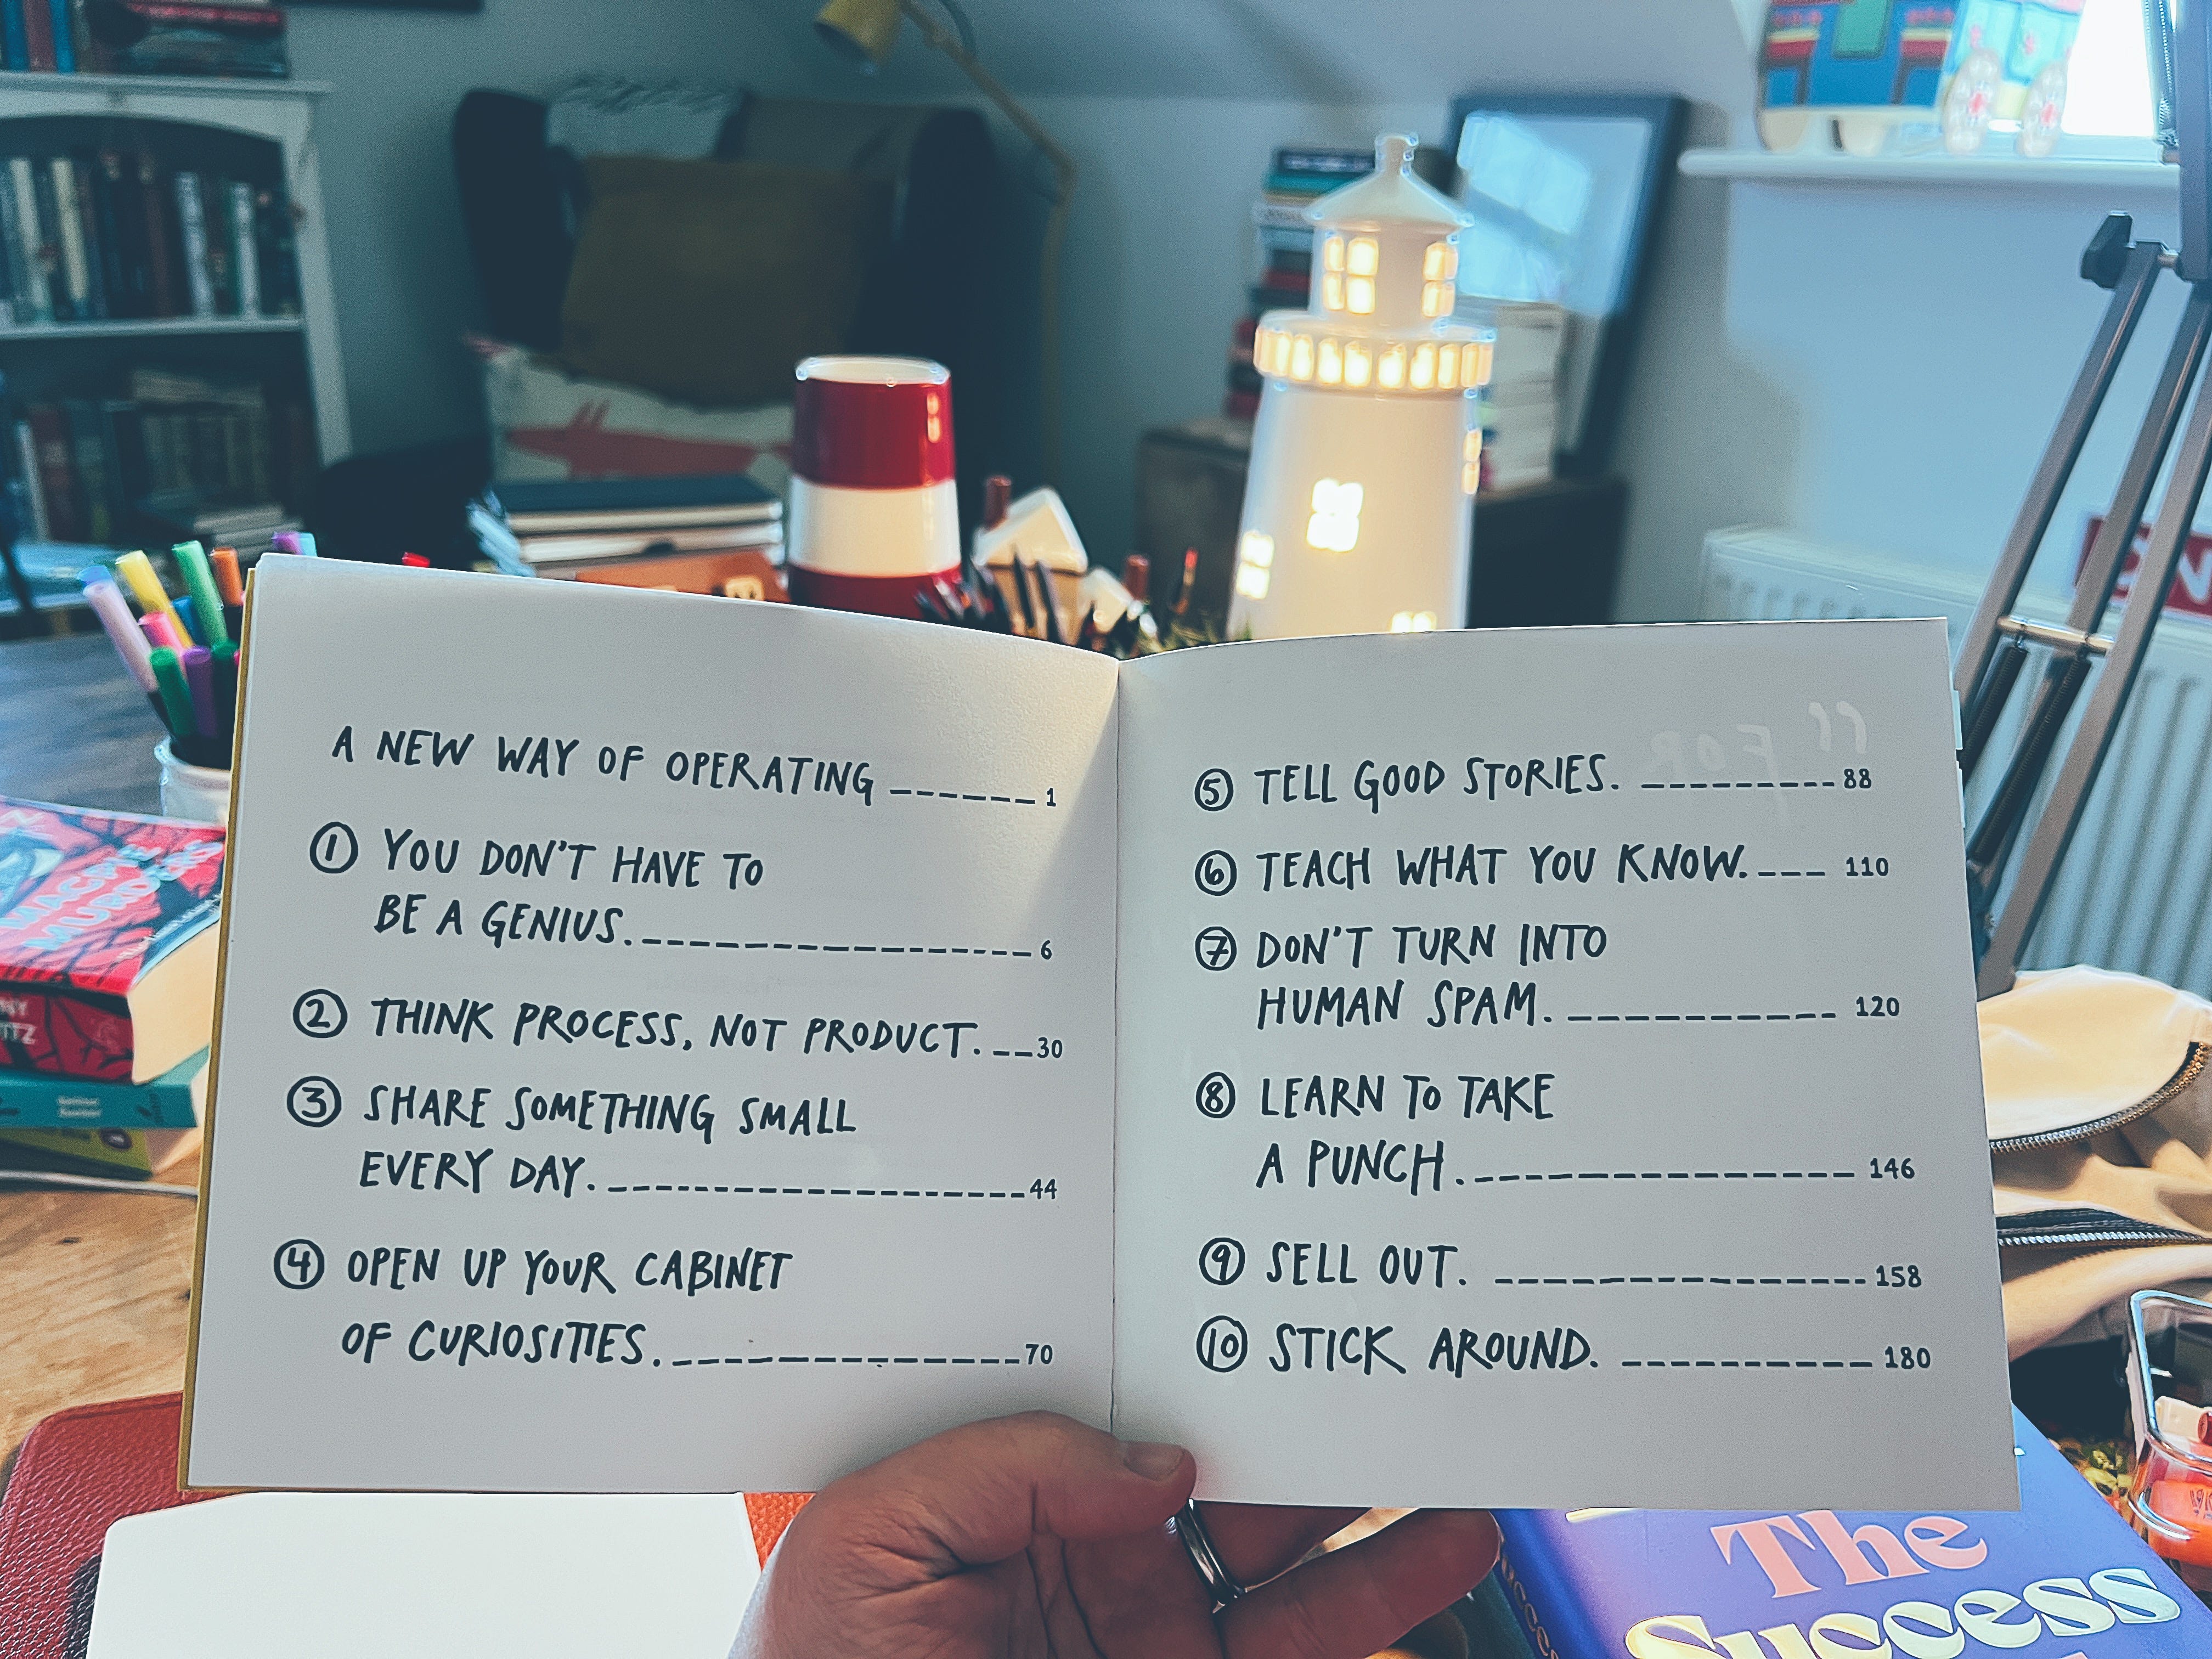 A NEW WAY OF OPERATING ------ 1
① YOU DON'T HAVE TO
BE A GENIUS. ------------------ 6
② THINK PROCESS, NOT PRODUCT. -- 30
③ SHARE SOMETHING SMALL
EVERY DAY. ------------------- 44
④ OPEN UP YOUR CABINET
OF CURIOSITIES. --------------- 70
⑤ TELL GOOD STORIES. --------- 88
⑥ TEACH WHAT YOU KNOW. --- 110
⑦ DON'T TURN INTO
HUMAN SPAM. ----------- 120
⑧ LEARN TO TAKE
A PUNCH. ---------------- 146
⑨ SELL OUT. --------------- 158
⑩ STICK AROUND. ---------- 180
MAGPIE
MURDERS
The
Success